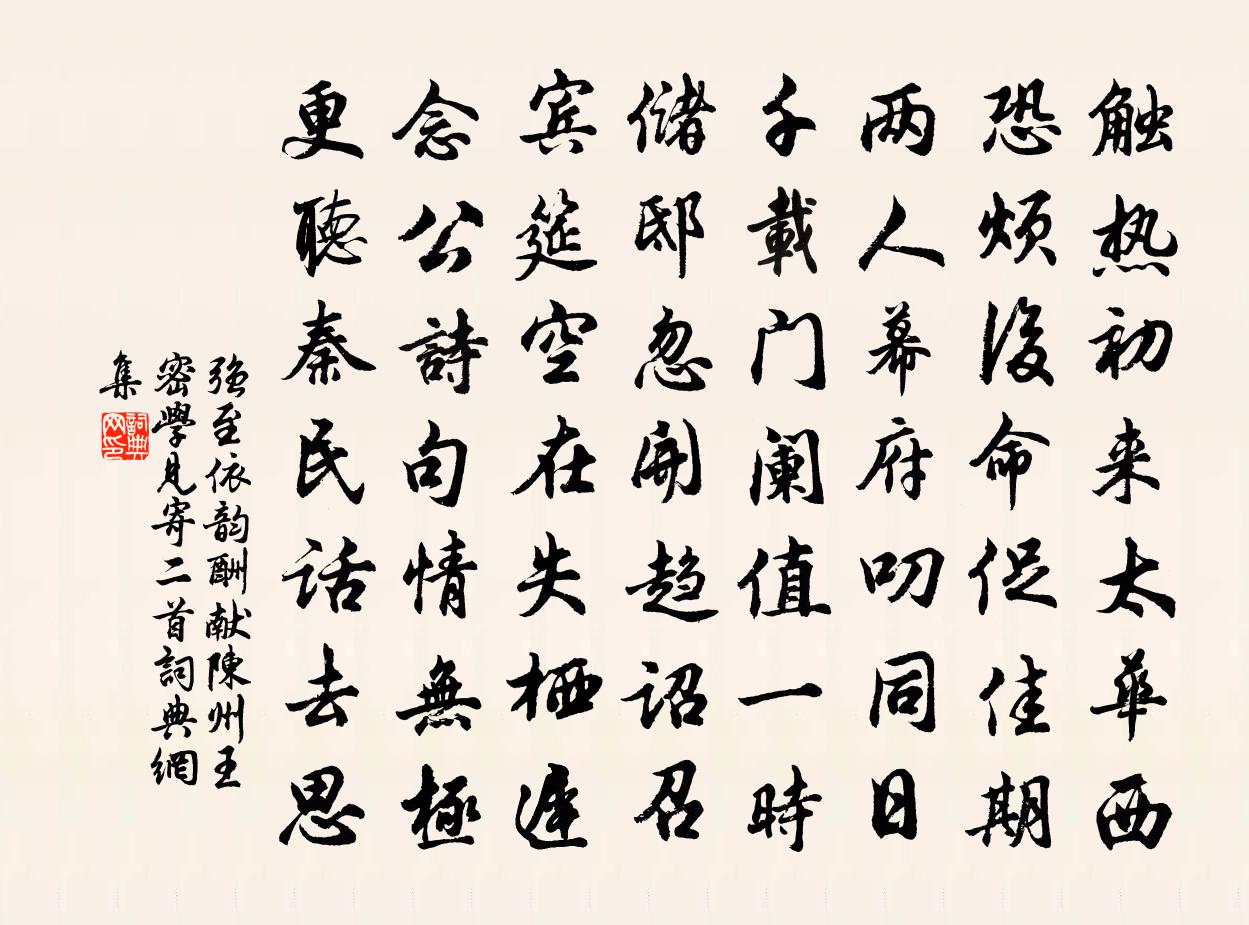 触热初来太华西
恐烦后命促佳期
两人幕府叨同日
千載门阑值一時
储邸忽開趋诏召
宾筵空在失栖遲
念公詩句情無極
更聽秦民话去思
强至依韵酬献陳州王
密學見寄二首詞典網
集
詞典
网印